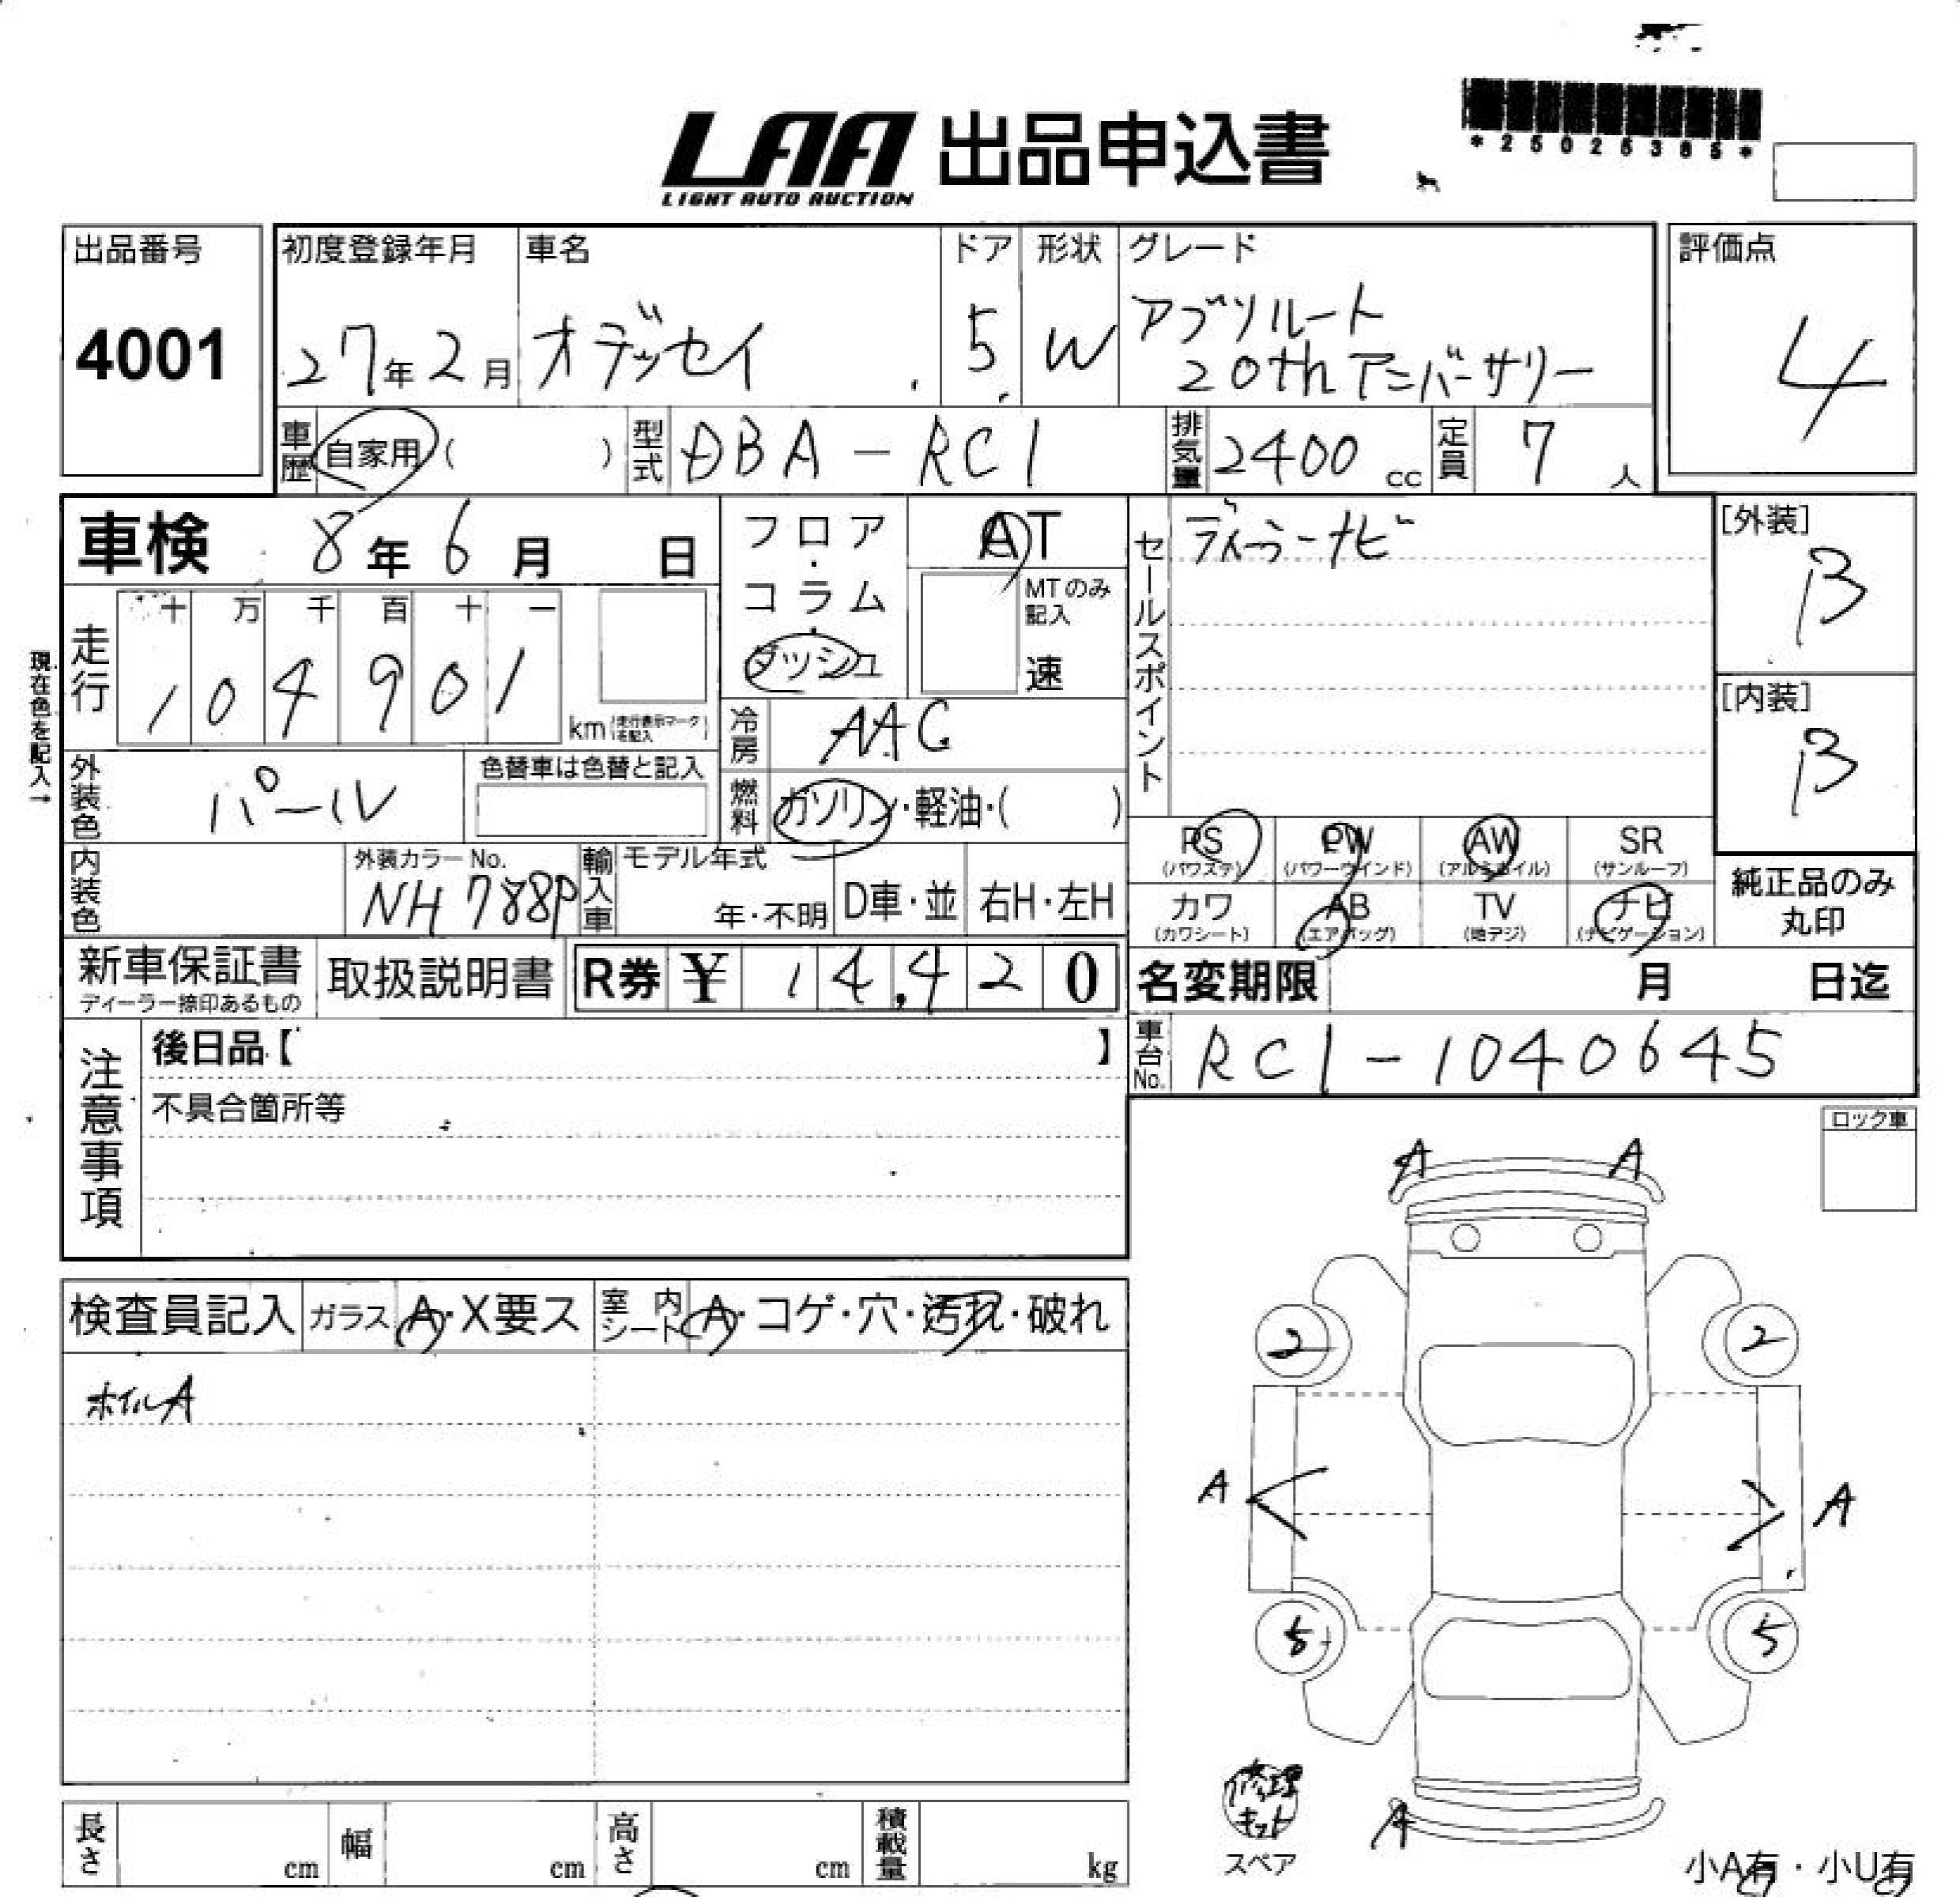 *25025385*
LAA 出品申込書
LIGHT AUTO AUCTION
出品番号
4001
初度登録年月
27年2月
車名
オデッセイ
ドア
5
形状
W
グレード
アブソルート
20thアニバーサリー
評価点
4
車歴 自家用 ( )
型式 DBA-RC1
排気量 2400 cc
定員 7 人
車検 8年6月 日
フロア・コラム・ダッシュ
AT
MTのみ記入
速
セールスポイント
ディーラーナビ
[外装]
B
[内装]
B
現在色を記入→
走行
十 万 千 百 十 一
1 0 4 9 0 1
km (走行表示マークを記入)
冷房 AAC
燃料 ガソリン・軽油・( )
外装色 パール
色替車は色替と記入
内装色
外装カラーNo.
NH788P
輸入車
モデル年式
年・不明
D車・並
右H・左H
PS (パワステ)
PW (パワーウインド)
AW (アルミホイル)
SR (サンルーフ)
カワ (カワシート)
AB (エアバッグ)
TV (地デジ)
ナビ (ナビゲーション)
純正品のみ
丸印
新車保証書
ディーラー捺印あるもの
取扱説明書
R券 ¥ 14,420
名変期限 月 日迄
車台No. RC1-1040645
注意事項
後日品【 】
不具合箇所等
ロック車
検査員記入
ガラス A・X要ス
室内シート A・コゲ・穴・汚れ・破れ
ホイルA
A A
2 2
A A
5 5
A
修理
キット
スペア
小A有・小U有
長さ cm
幅 cm
高さ cm
積載量 kg